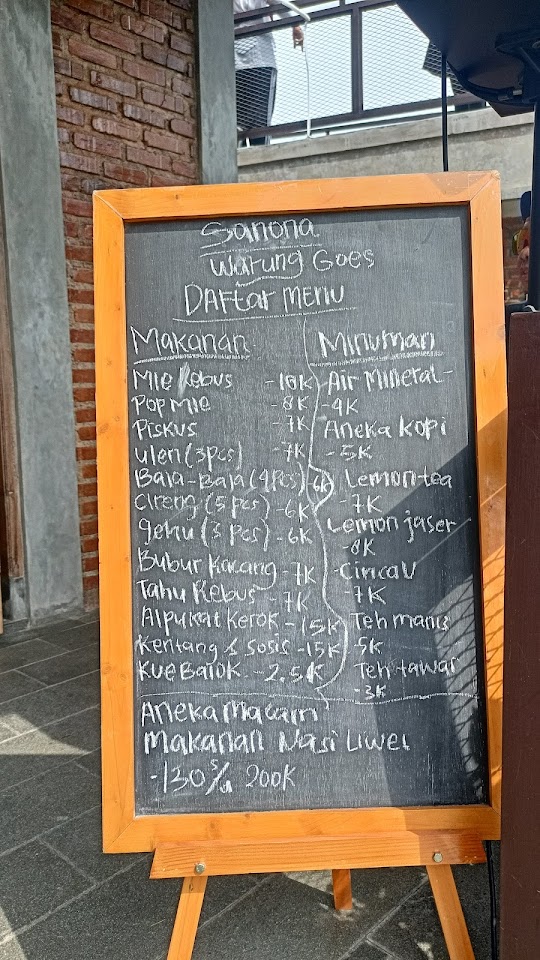 Sanona
Warung Goes
DAFtar Menu
Makanan
Mie Rebus -10K
Pop Mie -8K
Piskus -7K
ulen (3pcs) -7K
Bala-Bala (4pcs) -6K
Cireng (5 pcs) -6K
gehu (3 pcs) -6K
Bubur Kacang -7K
Tahu Rebus -7K
Alpukat Kerok -15K
Kentang & Sosis -15K
Kue Balok -2.5K
Minuman
Air Mineral -
-4K
Aneka kopi
-5K
Lemon tea
-7K
Lemon jaser
-8K
-7K
Teh manis
-5K
Teh tawar
-3K
Aneka Macam
Makanan Nasi Liwet
-130 s/d 200K